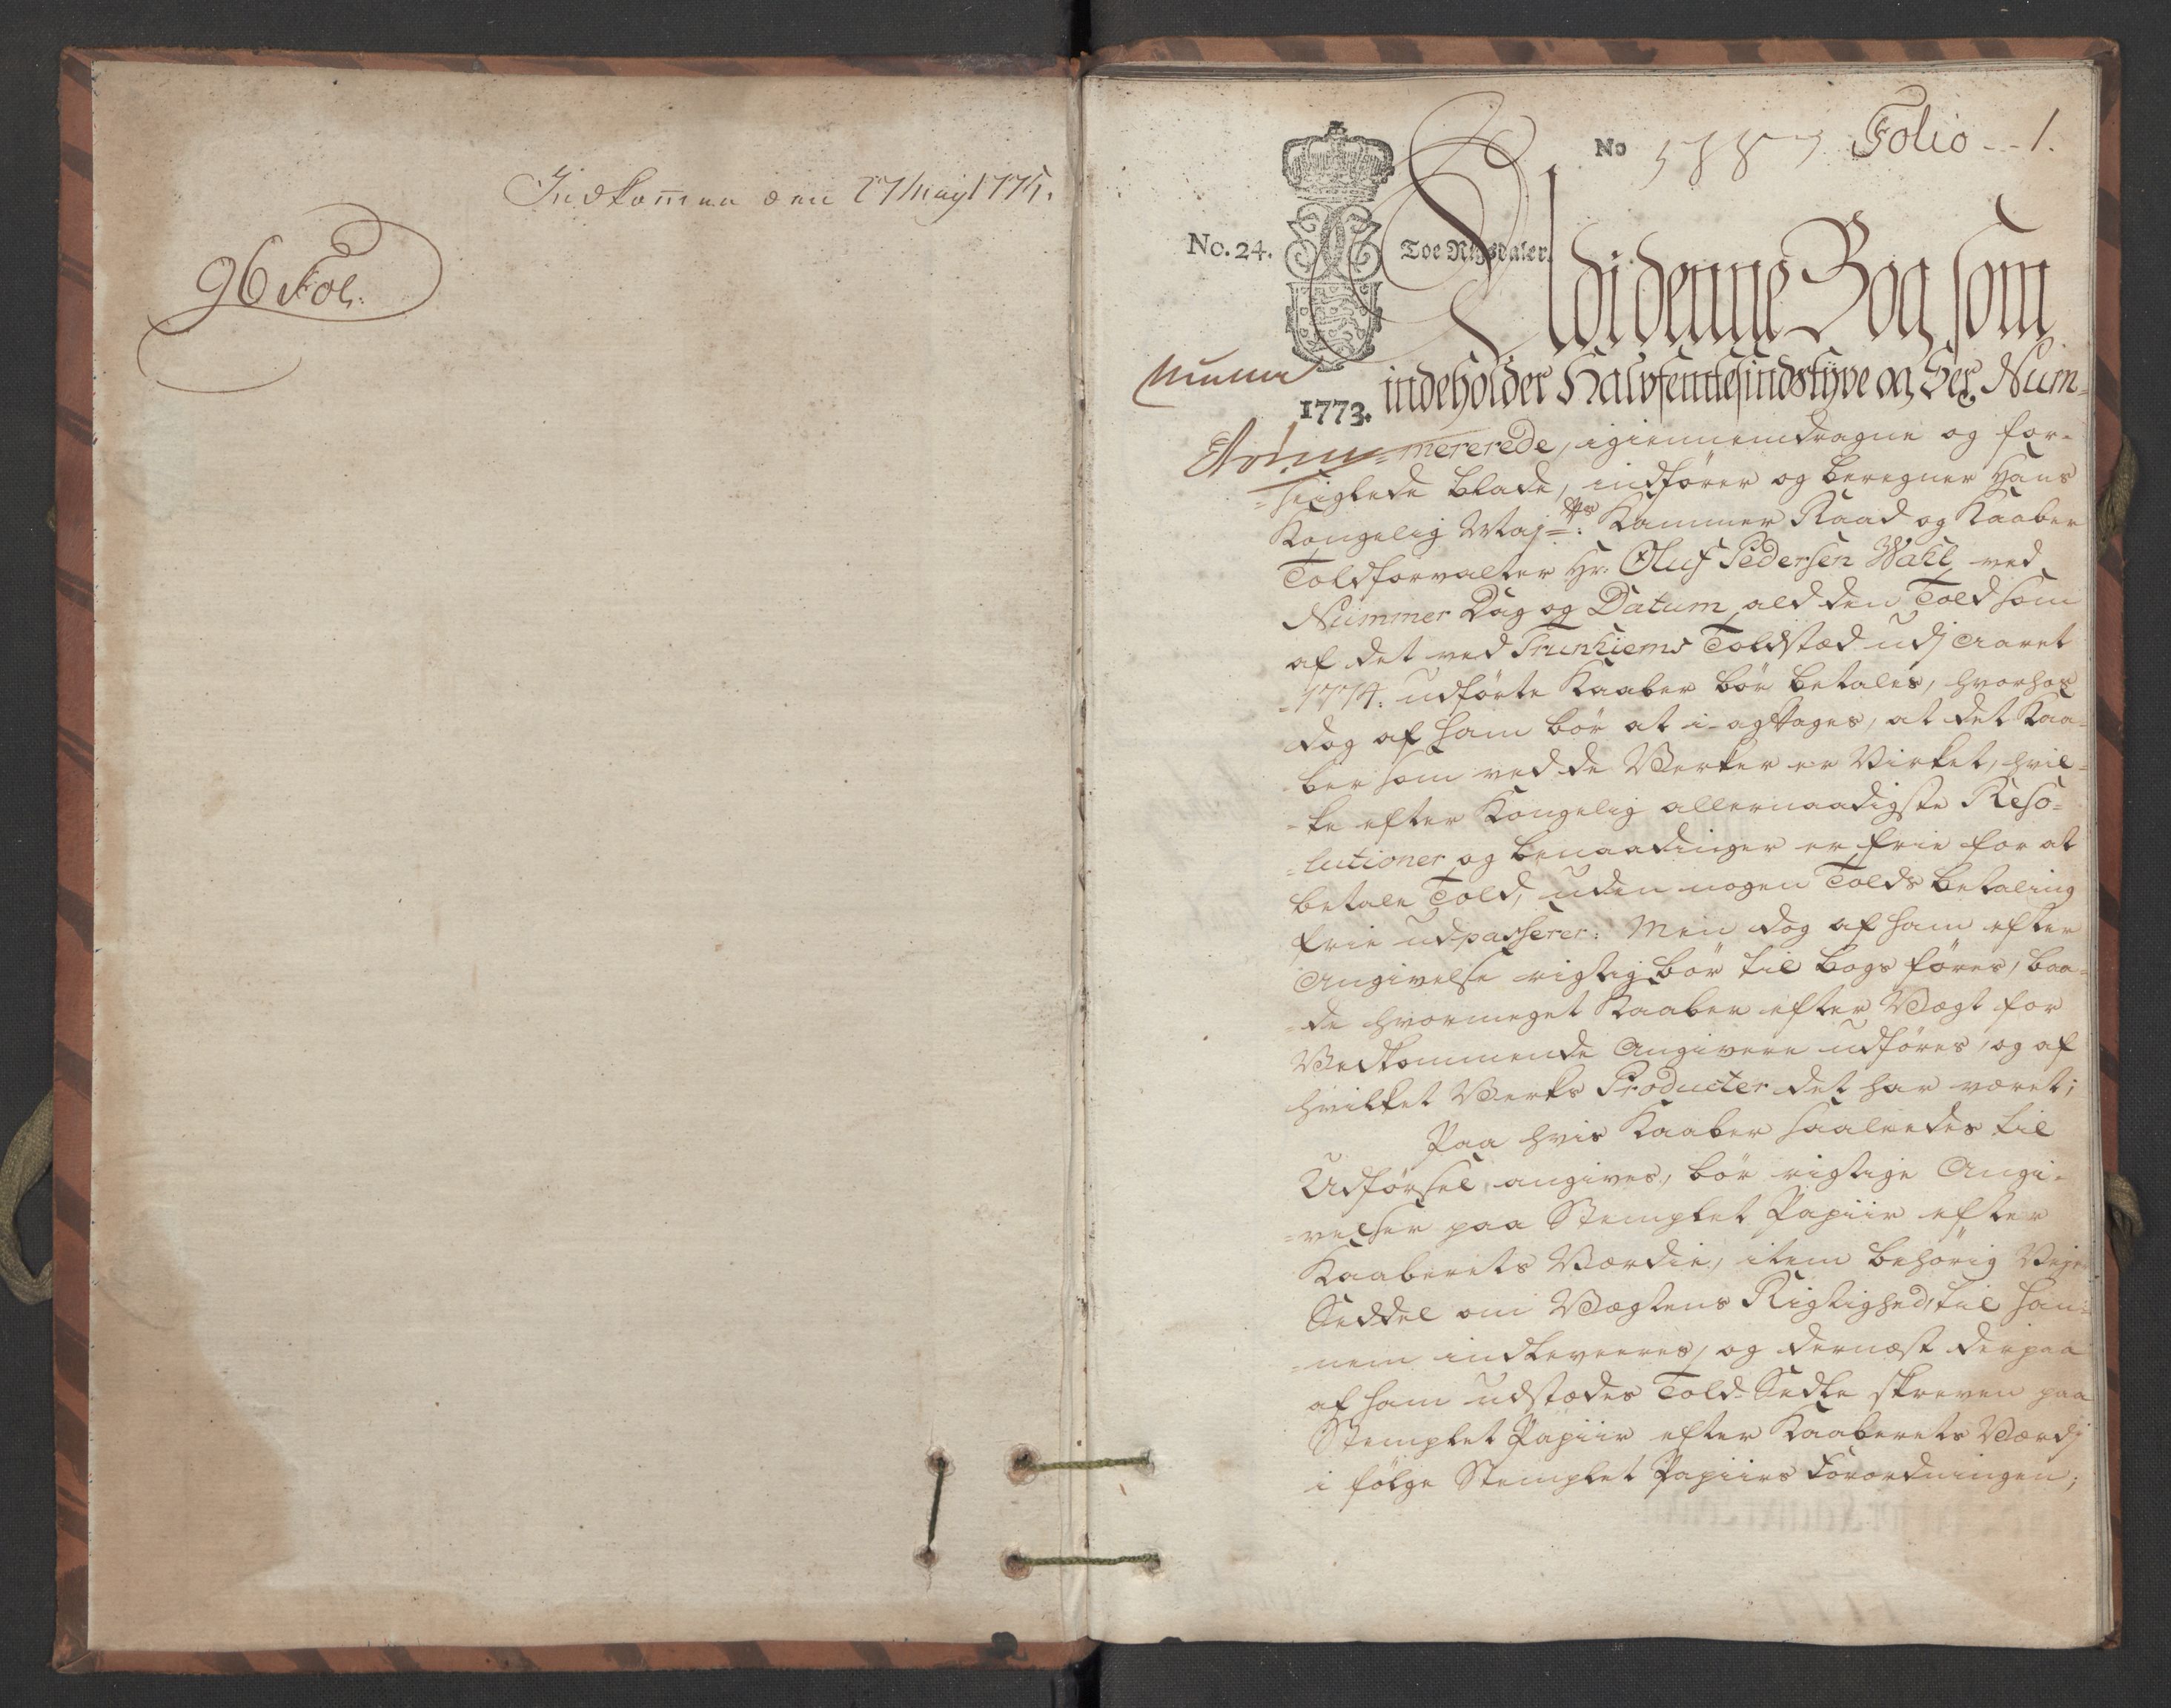 Indkommen den 27 May 1775.
96 Fol:
No 5787 Folio - - 1.
No. 24. Toe Rigsdaler.
Udi denne Bog som
indeholder Halvfemtesindstÿve og Sex Num=
1773.
=mererede, igiennemdragne og for=
=seiglede blade, indfører og beregner Hans
Kongelig Maj=ts: Kammer Raad og Kaaber
Toldforvalter Hr: Oluf Pedersen Wahl ved
Nummer Dag og Datum, ald den Told som
af det ved Trunhiems Toldstæd udj Aaret
1774. udførte Kaaber bør betales, hvorhos
dog af ham bør at i-agttages, at det Kaa=
ber som ved de Verker er Virket, hvil=
=ke efter Kongelig allernaadigste Reso=
=lutioner og benaadinger er frie for at
betale Told, uden nogen Tolds betaling
frie udpasserer: Men dog af ham efter
Angivelse rigtig bør til bogs føres, baa=
=de hvormeget Kaaber efter Vægt for
Vedkommende Angivere udføres, og af
hvilket Verks Producter det har været;
Paa hvis Kaaber saaledes til
Udførsel angives, bør rigtige Angi=
=velser paa Stemplet Papiir efter
Kaaberets Værdie, item behørig Veje
Seddel om Vægtens Rigtighed, til ham=
=nem indleveeres, og dernæst derpaa
af ham udstædes Told-Sedle skreven paa
Stemplet Papiir efter Kaaberets Værdj
i følge Stemplet Papiirs Forordningen;